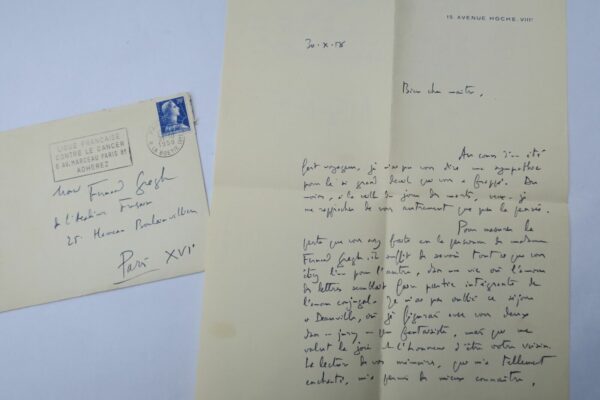 LIGUE FRANÇAISE
CONTRE LE CANCER
6 AV. MARCEAU PARIS 8E
ADHEREZ
1958
Fernand Gregh
de l'Académie Française
25 Hameau Boulainvilliers
Paris XVIe
15 AVENUE HOCHE VIIIe
30-X-58
Bien cher maître,
Au cours d'un été
fort voyageur, je n'ai pu vous dire ma sympathie
pour le si grand deuil qui vous a frappé. Du
moins, à la veille du jour des morts, veux-je
me rapprocher de vous autrement que par la pensée.
Pour mesurer la
perte que vous avez faite en la personne de madame
Fernand Gregh, il suffit de savoir tout ce que vous
étiez l'un pour l'autre, dans une vie où l'amour
des lettres semblait faire partie intégrante de
l'amour conjugal. Je n'ai pas oublié ce séjour
à Deauville, où je figurais avec vous deux
dans un jury un peu fantaisiste, mais qui me
valut la joie et l'honneur d'être votre voisin.
La lecture de vos mémoires, qui m'a tellement
enchanté, m'a permis de mieux connaître,